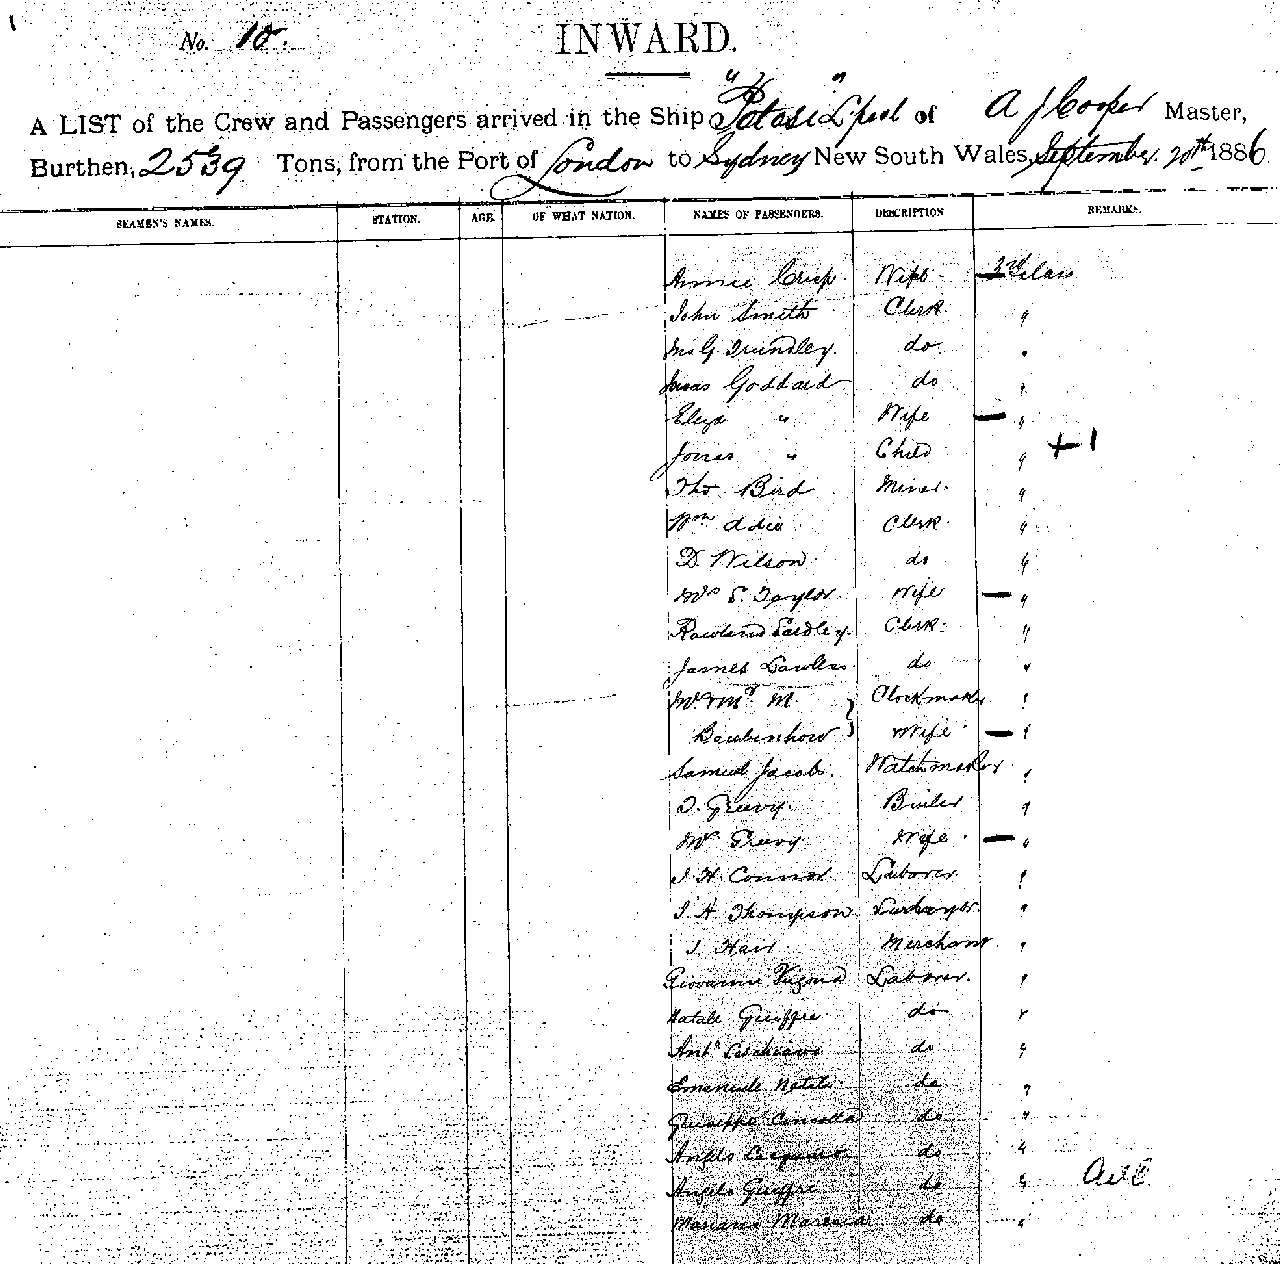 No. 10.
INWARD.
A LIST of the Crew and Passengers arrived in the Ship "Potosi" L'pool of A J Cooper Master,
Burthen, 2539 Tons, from the Port of London to Sydney New South Wales, September 20th 1886
SEAMEN'S NAMES. STATION. AGE. OF WHAT NATION. NAMES OF PASSENGERS. DESCRIPTION REMARKS.
Annie Crisp Wife 3rd Class
John Smith Clerk "
Grindley do "
Jonas Goddard do "
Eliza " Wife "
Jonas " Child " + 1
Tho Bird Miner "
Wm Adie Clerk "
D. Wilson do "
Mrs S. Taylor Wife "
Rowland Eardley Clerk "
James Lawless do "
Mr & Mrs M Clockmaker "
Wife "
Samuel Jacob. Watchmaker "
Greevy "
Mrs Greevy Wife "
J H Connor Laborer "
J. A. Thompson "
J. Hair Merchant "
Giovanni Laborer. "
Natale Giuffre do "
Anto do "
Emanuele Natale do "
Giuseppe do "
Angelo do "
Angelo Giuffre do "
Mariano do "